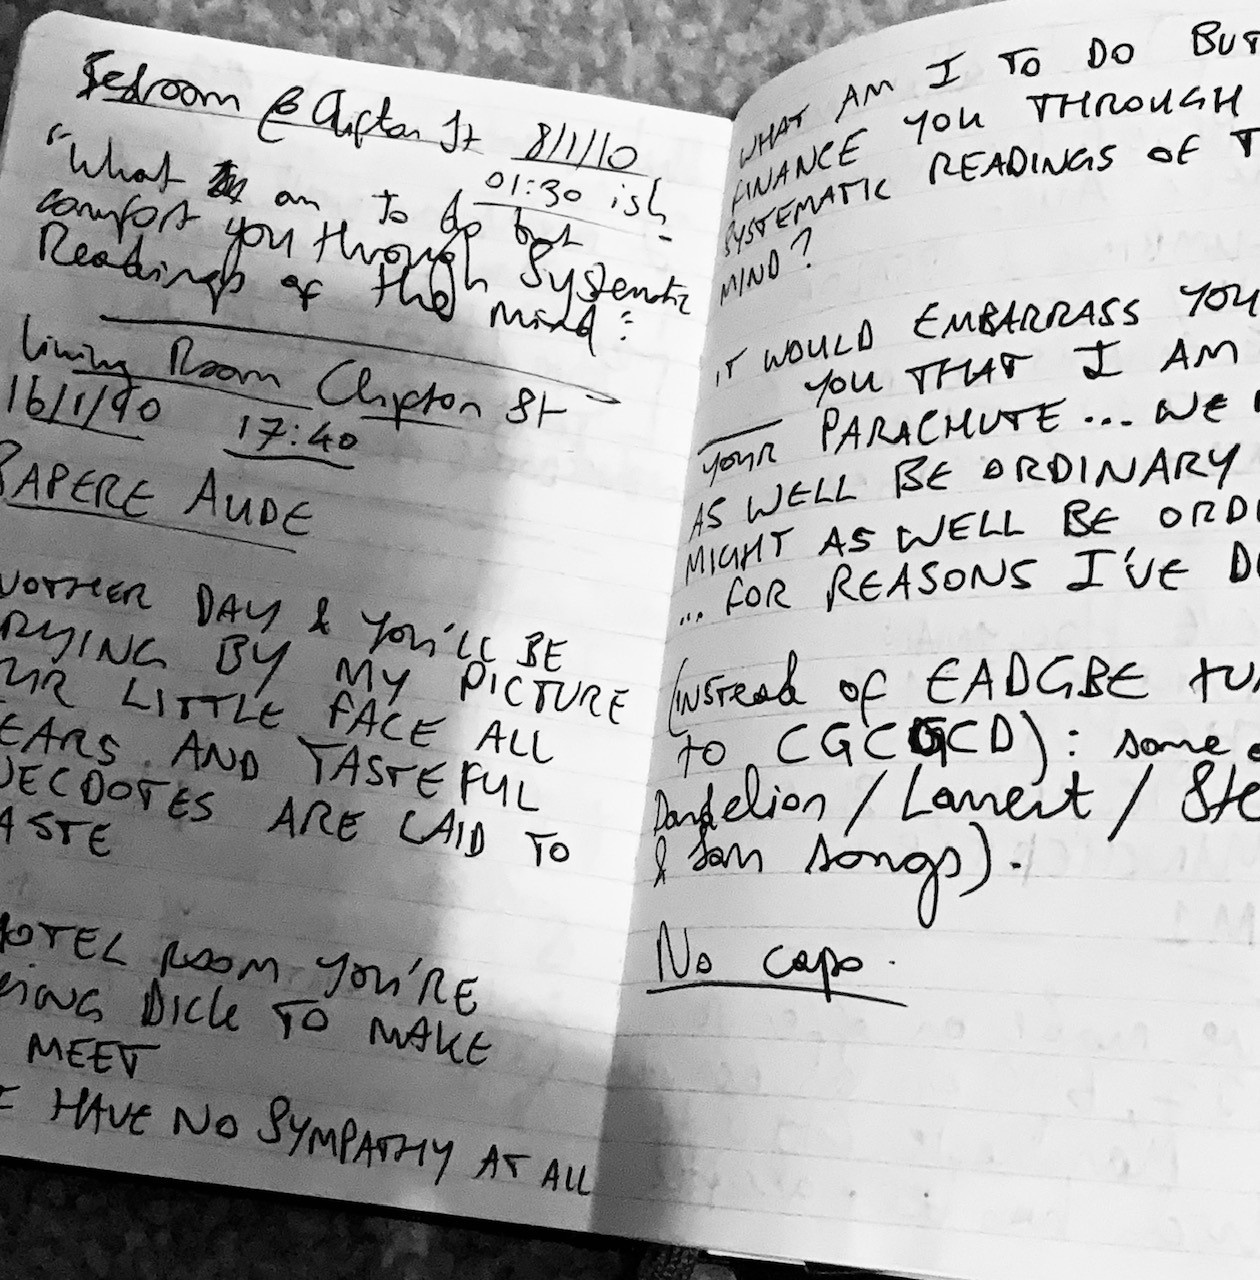 Bedroom @ Clifton St 8/1/10
01:30 ish
"What am to do but
comfort you through Systematic
Readings of the mind:
Living Room Clifton St
16/1/10 17:40
SAPERE AUDE
NOTHER DAY & YOU'LL BE
RYING BY MY PICTURE
UR LITTLE FACE ALL
EARS AND TASTEFUL
NECDOTES ARE LAID TO
ASTE
HOTEL ROOM YOU'RE
DICK TO MAKE
MEET
E HAVE NO SYMPATHY AT ALL
WHAT AM I TO DO BUT
FINANCE YOU THROUGH
SYSTEMATIC READINGS OF T
MIND?
IT WOULD EMBARRASS YOU
YOU THAT I AM
YOUR PARACHUTE... WE
AS WELL BE ORDINARY
MIGHT AS WELL BE ORDI
... FOR REASONS I'VE D
(INSTEAD of EADGBE tu
to CGCGCD): some
Dandelion / Lament / Ste
& Sam songs).
No capo.